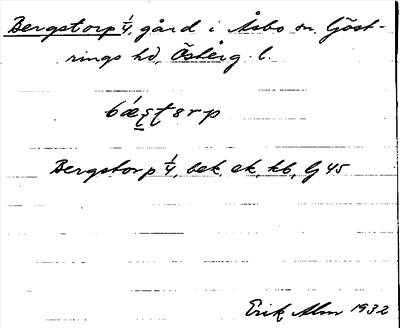 Bergstorp 1/4, gård i Åsbo sn. Göst-
rings hd, Österg. l.
Bergstorp 1/4, bek, ek, kb, Gj 45
Erik Alm 1932